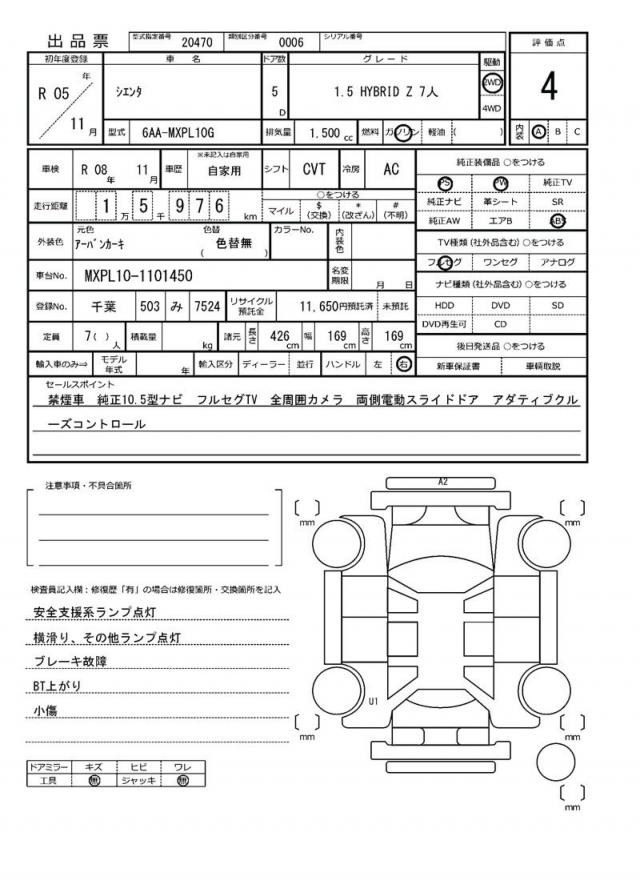 出品票 型式指定番号 20470 類別区分番号 0006 シリアル番号
評価点
4
初年度登録 車名 ドア数 グレード 駆動
R 05 年 11 月
シエンタ
5 D
1.5 HYBRID Z 7人
2WD
4WD
型式 6AA-MXPL10G 排気量 1,500 cc 燃料 ガソリン 軽油 ( )
内装 A B C
車検 R 08 年 11 月 車歴 ※未記入は自家用 自家用 シフト CVT 冷房 AC
走行距離 1 万 5 千 9 7 6 km
○をつける
マイル $ (交換) * (改ざん) # (不明)
外装色 元色 アーバンカーキ 色替 ( 色替無 ) カラーNo. 内装色
車台No. MXPL10-1101450 名変期限 月 日
登録No. 千葉 503 み 7524 リサイクル預託金 11,650円預託済 未預託
定員 7( ) 人 積載量 kg 諸元 長さ 426 cm 幅 169 cm 高さ 169 cm
輸入車のみ⇒ モデル年式 年 輸入区分 ディーラー 並行 ハンドル 左 右
純正装備品 ○をつける
PS PW 純正TV
純正ナビ 革シート SR
純正AW エアB ABS
TV種類(社外品含む) ○をつける
フルセグ ワンセグ アナログ
ナビ種類(社外品含む) ○をつける
HDD DVD SD
DVD再生可 CD
後日発送品 ○をつける
新車保証書 車輌取説
セールスポイント
禁煙車 純正10.5型ナビ フルセグTV 全周囲カメラ 両側電動スライドドア アダティブクル
ーズコントロール
注意事項・不具合箇所
検査員記入欄:修復歴「有」の場合は修復箇所・交換箇所を記入
安全支援系ランプ点灯
横滑り、その他ランプ点灯
ブレーキ故障
BT上がり
小傷
ドアミラー キズ ヒビ ワレ
工具 無 ジャッキ 無
A2
mm
mm
U1
mm
mm
mm